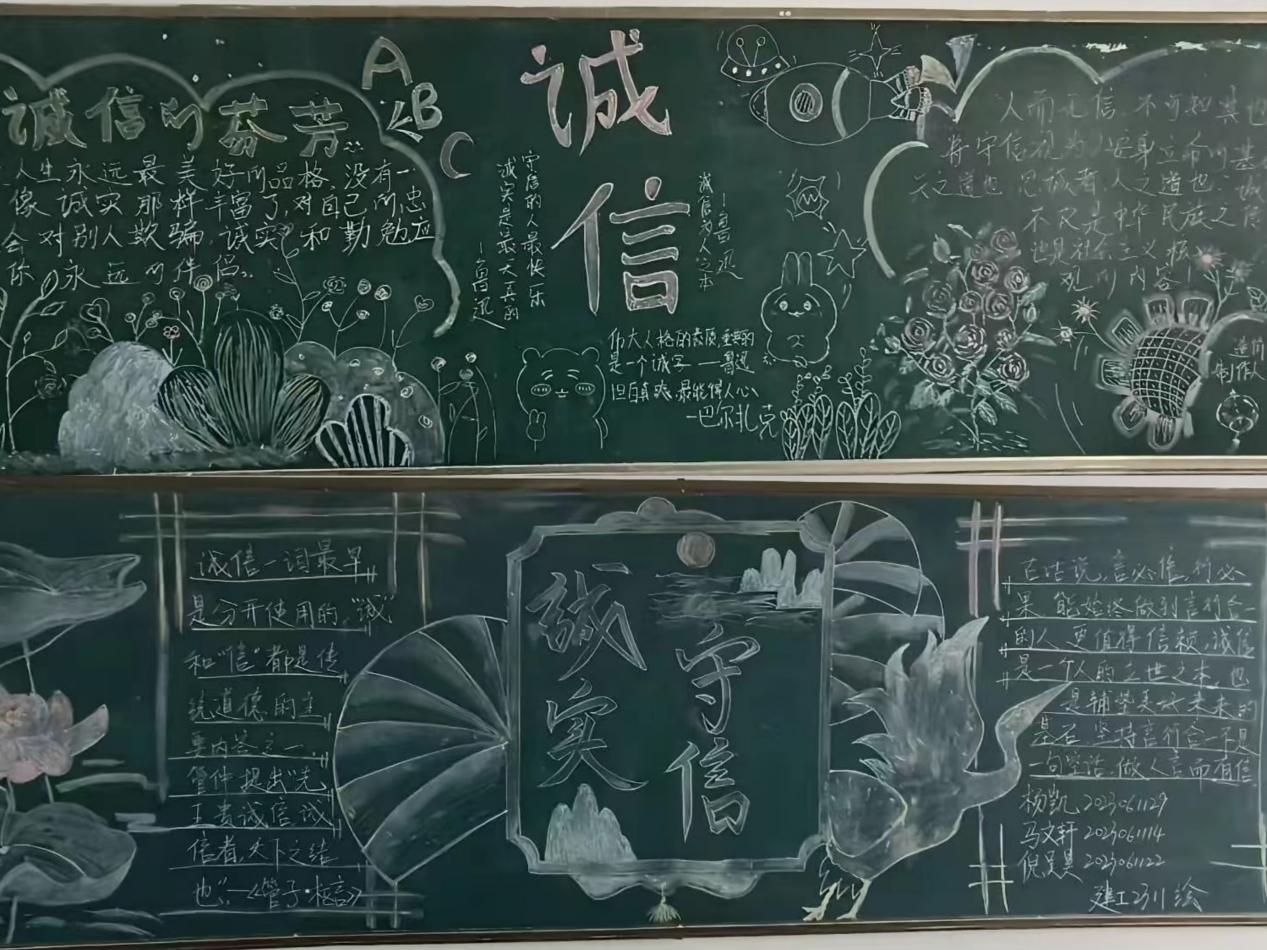 诚信的芬芳
A
B
C
人生永远最美好的品格,没有一
像诚实那样丰富了,对自己的忠
会对别人欺骗,诚实和勤勉应
你永远的伴侣。
诚信
守信的人最快乐
诚实是最天真的
—鲁迅
诚信为人之本
—鲁迅
伟大人格的素质,重要的
是一个诚字——鲁迅
坦白真诚,最能得人心
—巴尔扎克
人而无信,不可知其也
将守信视为安身立命的基
天之道也,思诚者,人之道也
诚
不仅是中华民族之信
也是社会主义核
观的内容
造价
制作人
诚信一词最早
是分开使用的,“诚”
和“信”都是传
统道德的主
要内容之一,
管仲提出“先
王贵诚信,诚
信者,天下之结
也”—《管子·枢言》
誠实
守信
古话说,言必信,行必
果,能始终做到言行合一
的人更值得信赖,诚信
是一个人的立世之本,也
是铺垫美好未来的
基石,坚持言行合一不是
一句空话,做人言而有信
杨凯 2023061129
马文轩 2023061114
倪昊昊 2023061122
建工2311绘